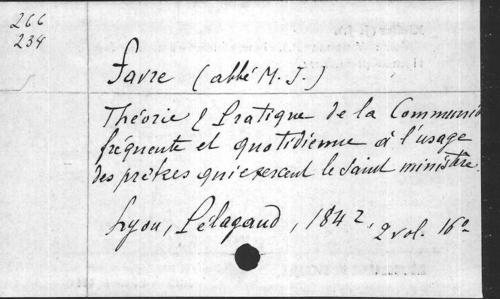 266
234
Favre (abbé M. J.)
Théorie & Pratique de la Communio
fréquente et quotidienne à l'usage
des prêtres qui exercent le saint ministère.
Lyon, Pélagaud, 1842, 2 vol. 16º